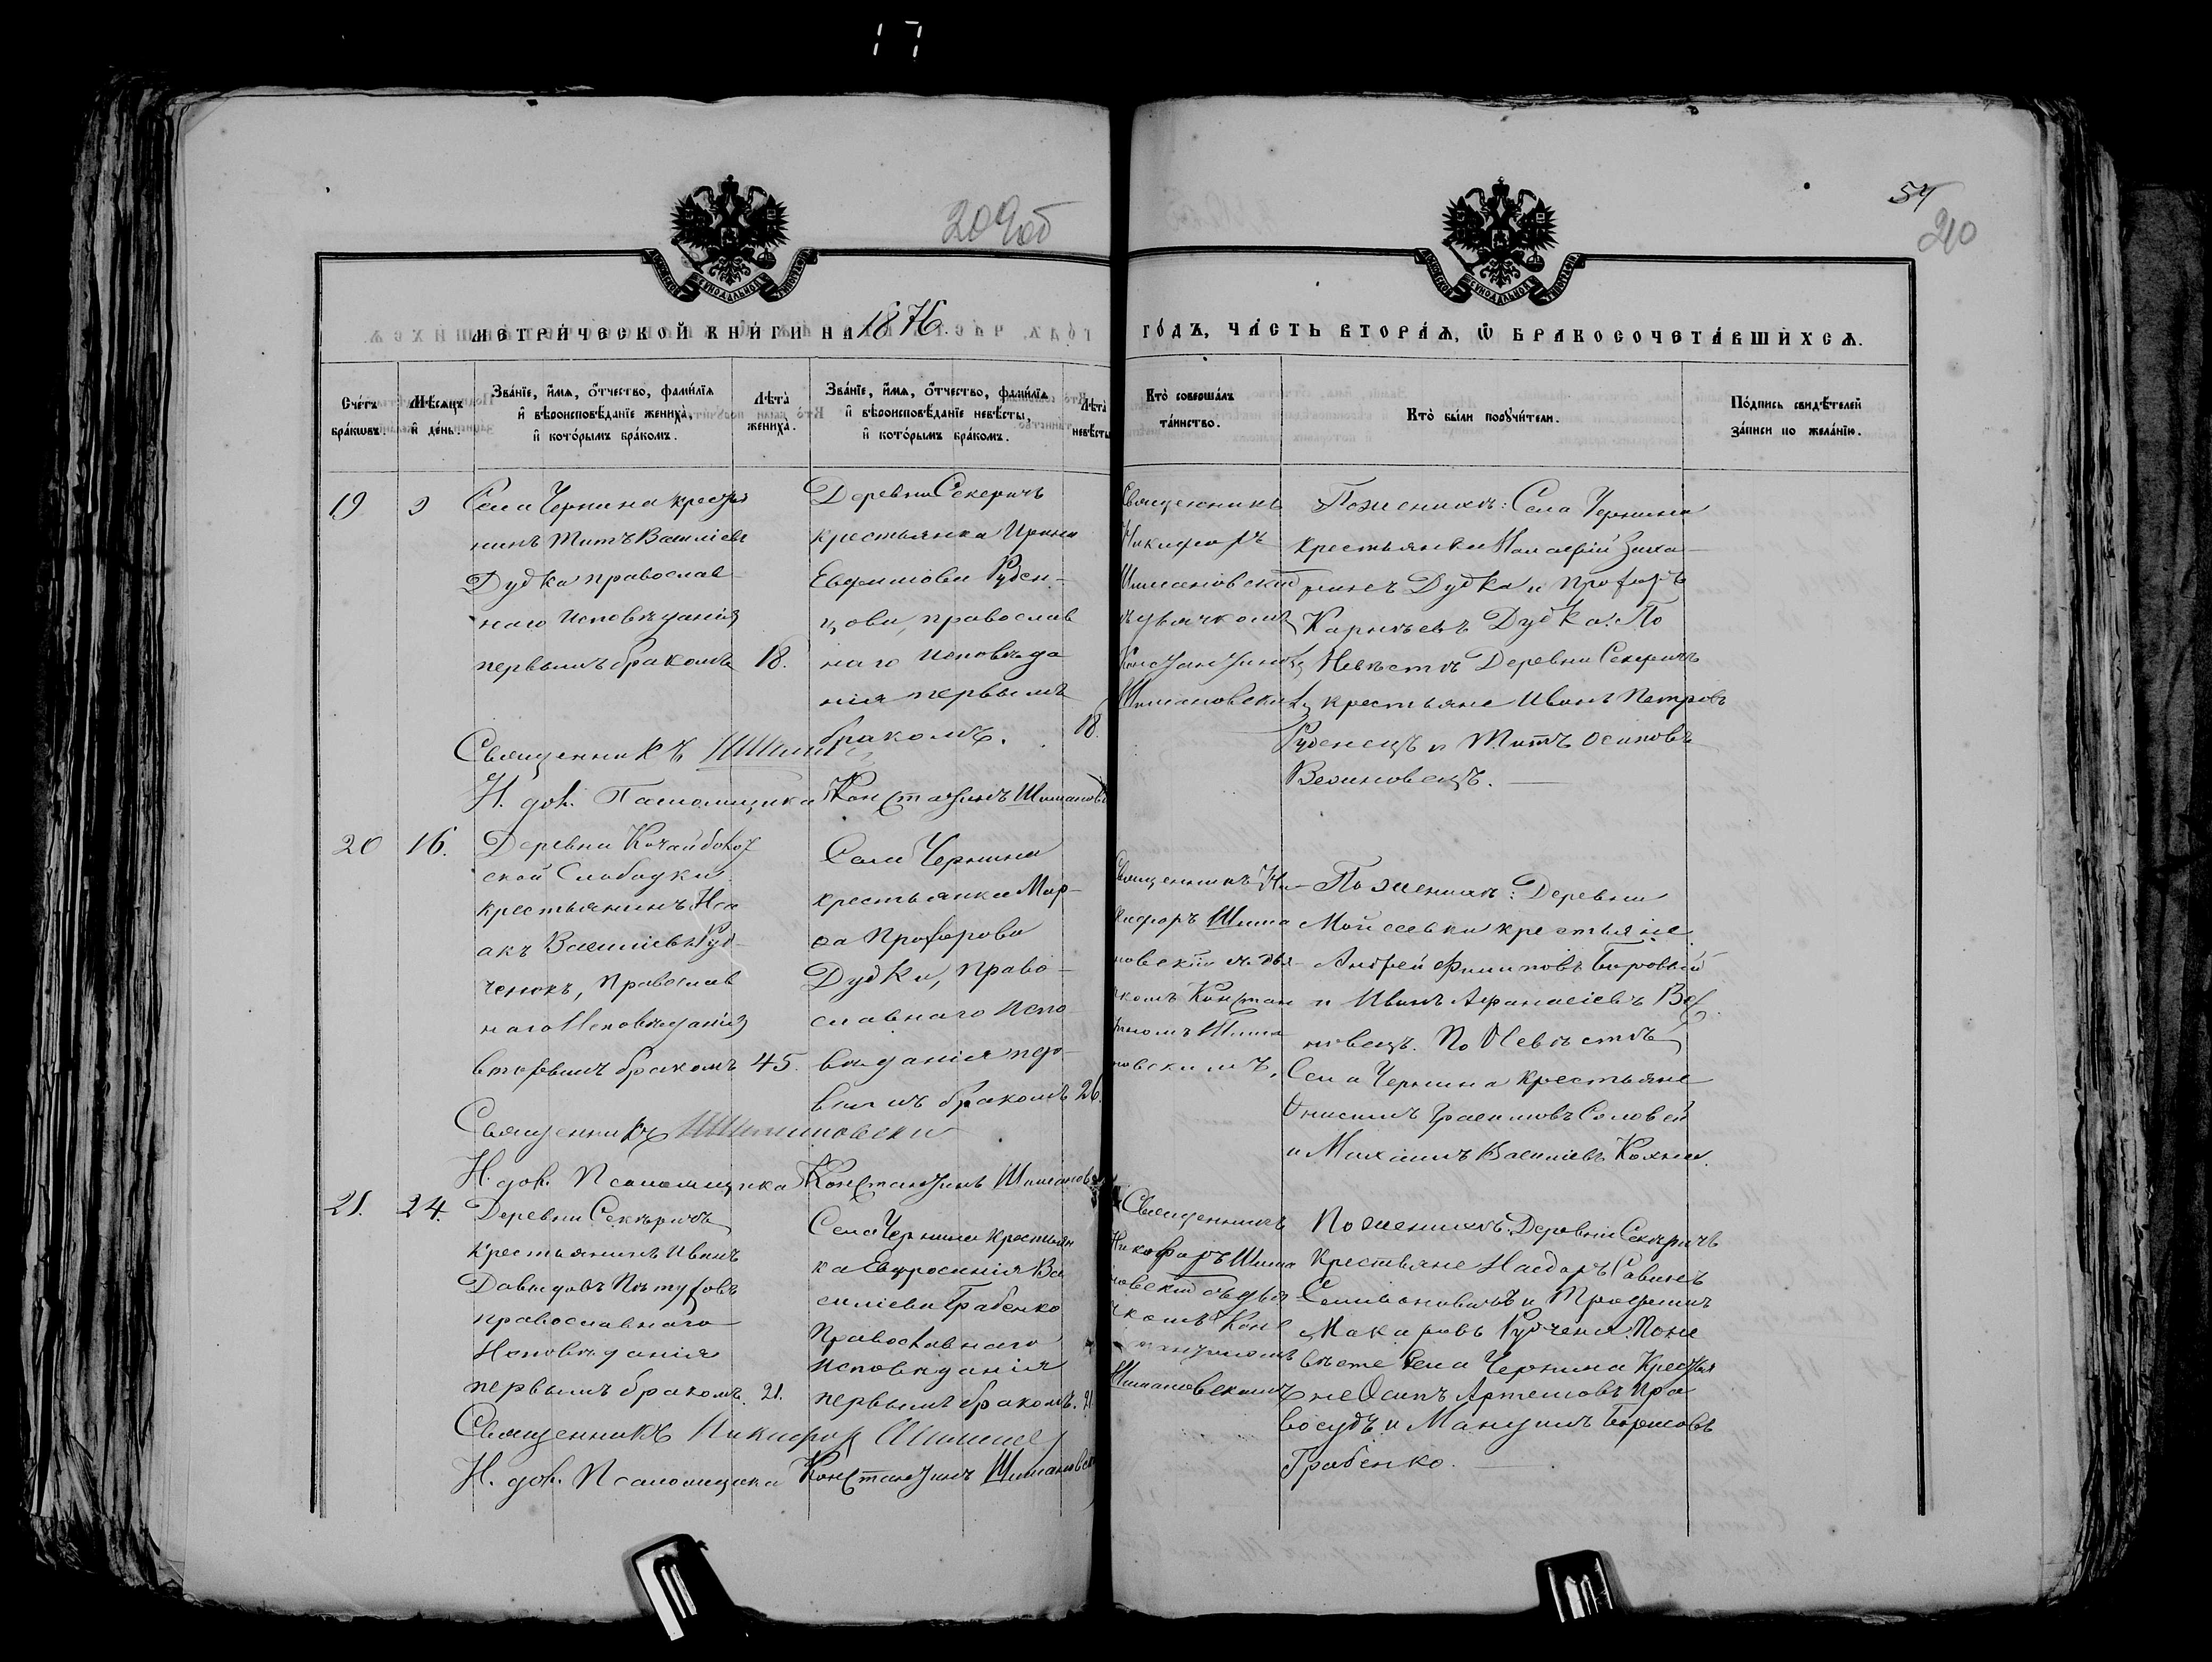 17
209об
54
210
МЕТРИЧЕСКОЙ КНИГИ НА 1876
ГОДЪ, ЧАСТЬ ВТОРАѦ, Ѡ БРАКОСОЧЕТАВШИХСѦ.
Счетъ браковъ.
Мѣсяцъ и день.
Званіе, имя, отчество, фамилія
и вѣроисповѣданіе жениха,
и которымъ бракомъ.
Лѣта жениха.
Званіе, имя, отчество, фамилія
и вѣроисповѣданіе невѣсты,
и которымъ бракомъ.
Лѣта невѣсты
Кто совершалъ
таинство.
Кто были поручители.
Подпись свидѣтелей
записи по желанію.
19
9
Села Чернина крестья
нинъ Титъ Василіевъ
Дудка православ
наго исповѣданія
первымъ бракомъ
18.
Деревни Секеричъ
крестьянка Ирина
Евфимова Руден-
цова, православ
наго исповѣда
нія первымъ
бракомъ.
18.
Священникъ
Никифоръ
Шимановскій
съ дьячкомъ
Константиномъ
Шимановскимъ
По женихѣ: Села Чернина
крестьяне
Дудка и Прохоръ
Карпѣевъ Дудка. По
Невѣстѣ Деревни Секеричъ
крестьяне Иванъ Петровъ
Руденецъ и Титъ Осиповъ
Священникъ
Н. дол. Псаломщика Константинъ Шимановс
20
16.
Деревни
ской Слободки
крестьянинъ Иса
акъ Василіевъ Руд-
ченокъ, Православ
наго Исповѣданія
вторымъ бракомъ
45.
Села Чернина
крестьянка Мар-
ѳа Прохорова
Дудка, право-
славнаго испо
вѣданія пер-
вымъ бракомъ
26.
Священникъ Ни-
кифоръ Шима
новскій съ дья-
чкомъ Констан
тиномъ Шима
новскимъ.
По женихѣ: Деревни
Мойсеевки крестьяне
Андрей Филиповъ Боровый
и Иванъ Афанасіевъ
новецъ. По Невѣстѣ
Села Чернина крестьяне
Онисимъ Герасимовъ Соловей
и Михаилъ Василіевъ
Священникъ Шимановски
Н. дол. Псаломщика Константинъ Шимановс
21.
24.
Деревни Секеричъ
Крестьянинъ Иванъ
Давидовъ Пѣтуховъ
православнаго
Исповѣданія
первымъ бракомъ.
21.
Села Чернина крестьян
ка Евфросинія Ва
силіева Грабенко
Православнаго
исповѣданія
первымъ бракомъ.
21
Священникъ
Никифоръ Шима
новскій съ дья
чкомъ Конс
тантиномъ
Шимановскимъ
По женихѣ. Деревни Секеричъ
Крестьяне Исидоръ Савинъ
и Трофимъ
Макаровъ Рудченя. По не
вѣсте Села Чернина Крестья
не Осипъ Артемовъ Пра
восудъ и Мануилъ Борисовъ
Грабенко.
Священникъ Никифор
Н. дол. Псаломщика Константинъ Шимановск